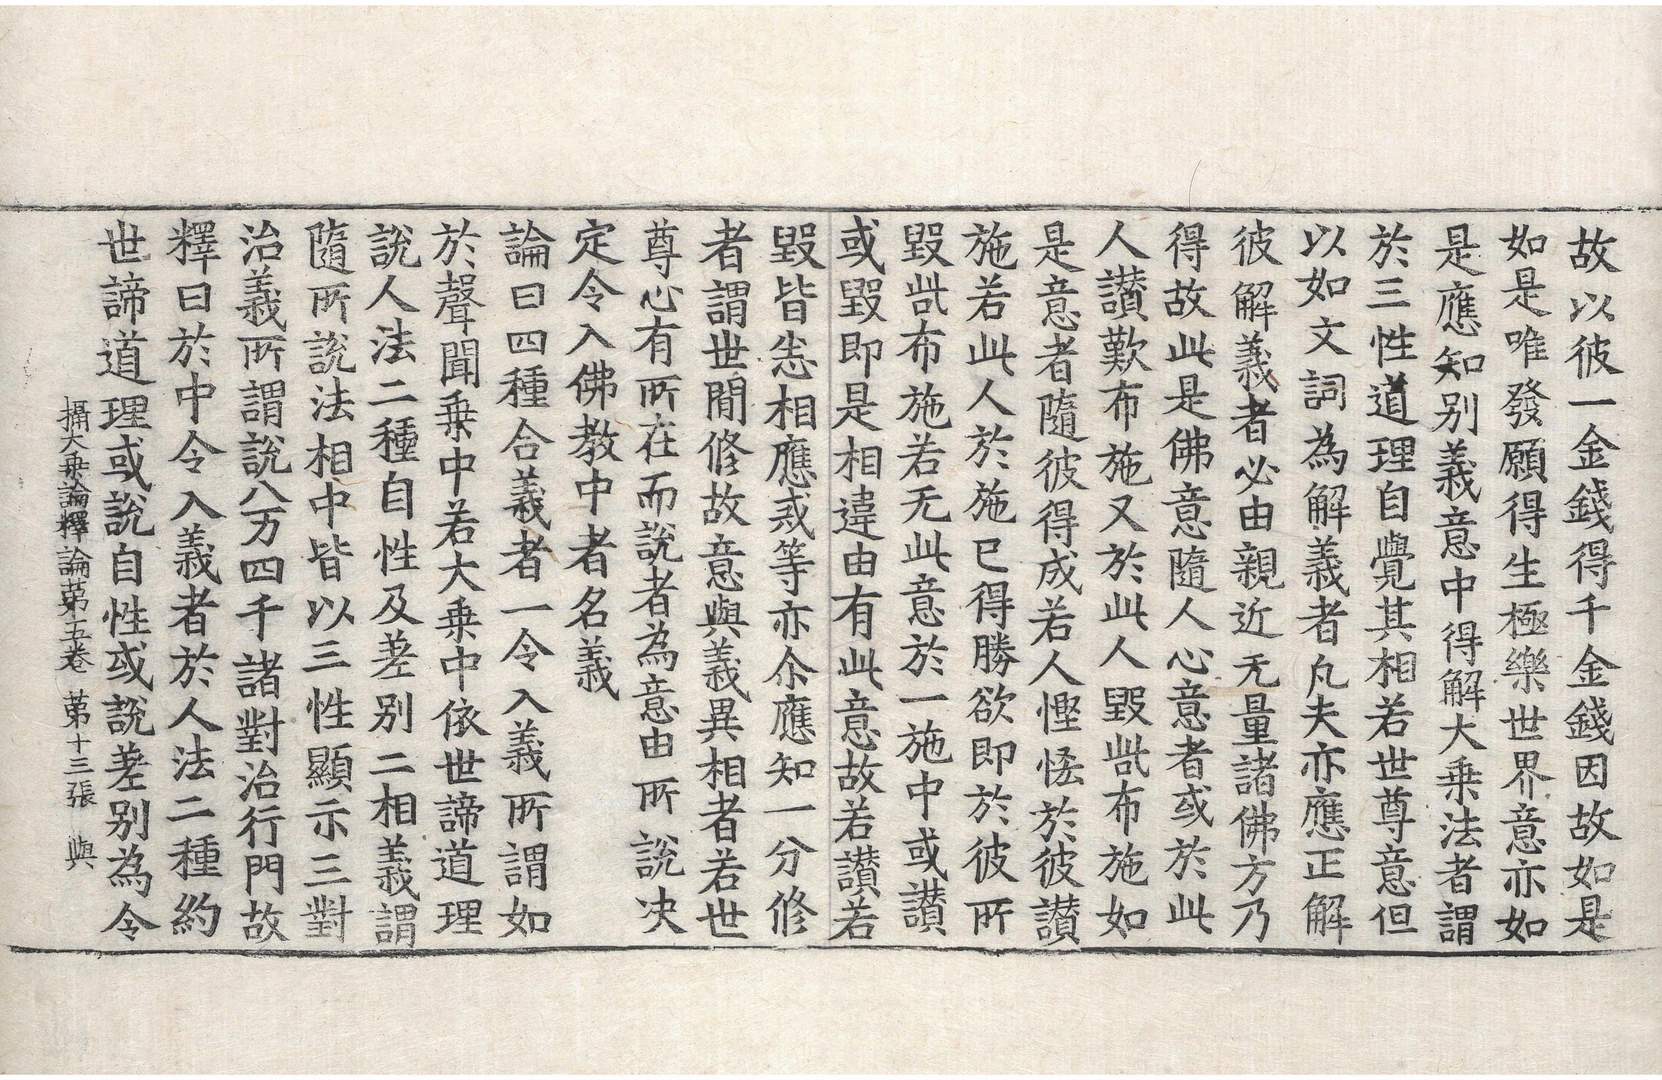 故以彼一金錢得千金錢因故如是
如是唯發願得生極樂世界意亦如
是應知別義意中得解大乗法者謂
於三性道理自覺其相若世尊意但
以如文詞為解義者凡夫亦應正解
彼解義者必由親近无量諸佛方乃
得故此是佛意隨人心意者或於此
人讃歎布施又於此人毀呰布施如
是意者隨彼得成若人慳悋於彼讃
施若此人於施已得勝欲即於彼所
毀呰布施若无此意於一施中或讃
或毀即是相違由有此意故若讃若
毀皆悉相應戒等亦尒應知一分修
者謂世閒修故意與義異相者若世
尊心有所在而說者為意由所說决
定令入佛教中者名義
論曰四種合義者一令入義所謂如
於聲聞乗中若大乗中依世諦道理
說人法二種自性及差別二相義謂
隨所說法相中皆以三性顯示三對
治義所謂說八万四千諸對治行門故
釋曰於中令入義者於人法二種約
世諦道理或說自性或說差別為令
攝大乗論釋論第五卷 第十三張 與